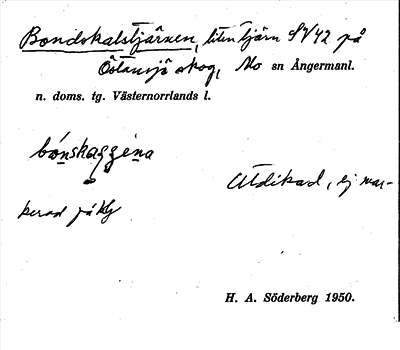 Bondskatstjärnen, liten tjärn SV/42 på
Östansjö skog, Mo sn Ångermanl.
n. doms. tg. Västernorrlands l.
Utdikad, ej mar-
kerad på kbl
H. A. Söderberg 1950.